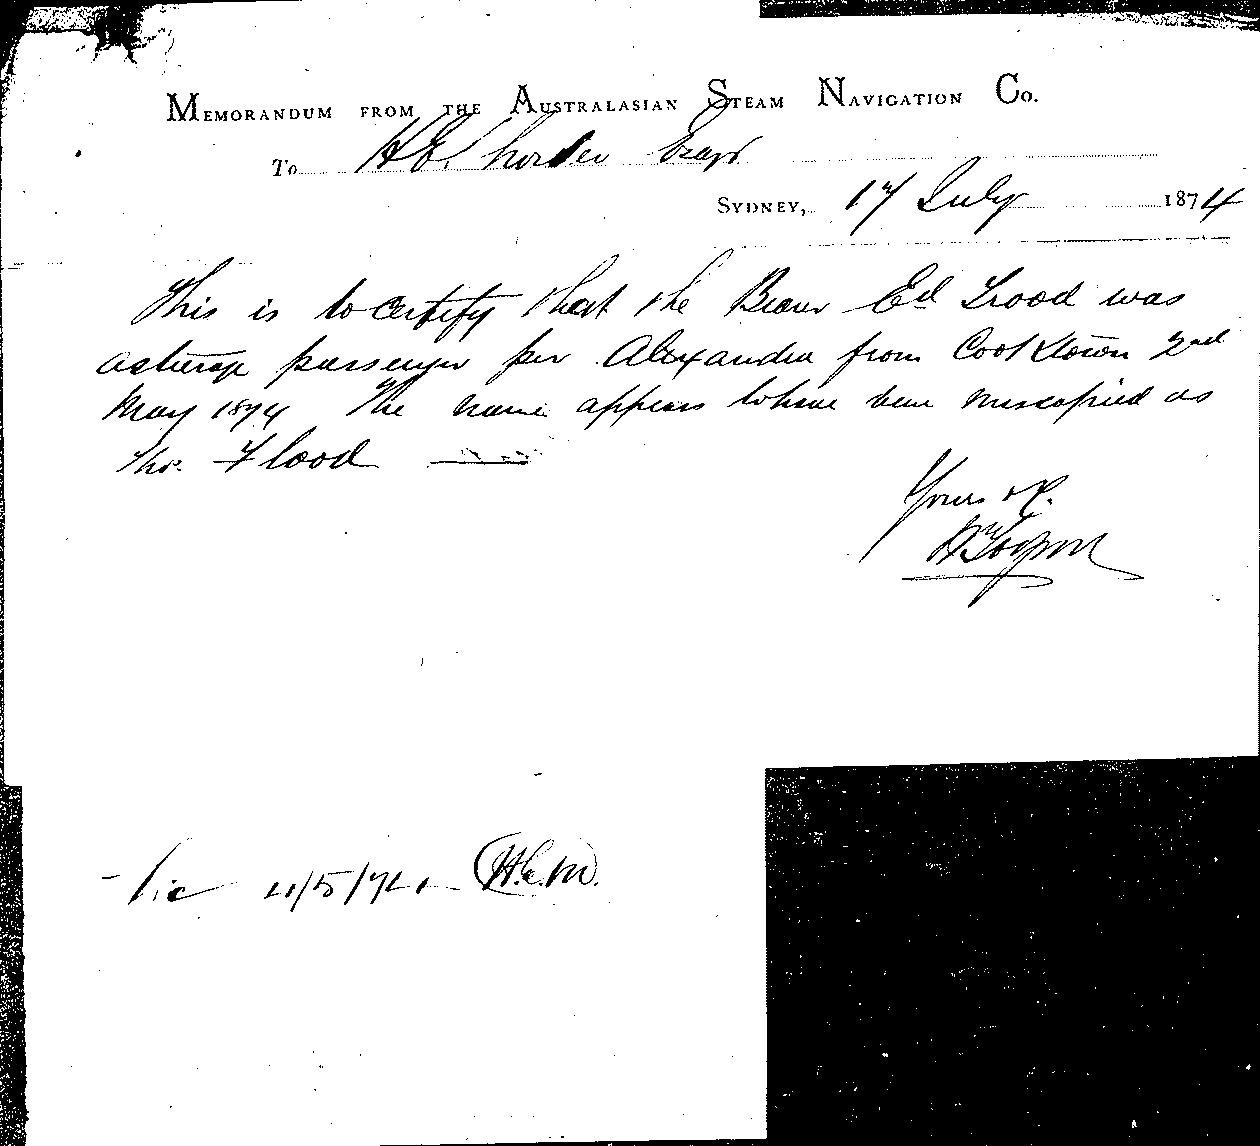 MEMORANDUM FROM THE AUSTRALASIAN STEAM NAVIGATION CO.
To H E Esqr
SYDNEY, 17 July 1874
This is to certify that the Bearer Ed Trood was
a steerage passenger per Alexandra from Cooktown 2nd
May 1874 The name appears to have been miscopied as
Thos. Flood
Yours &c.